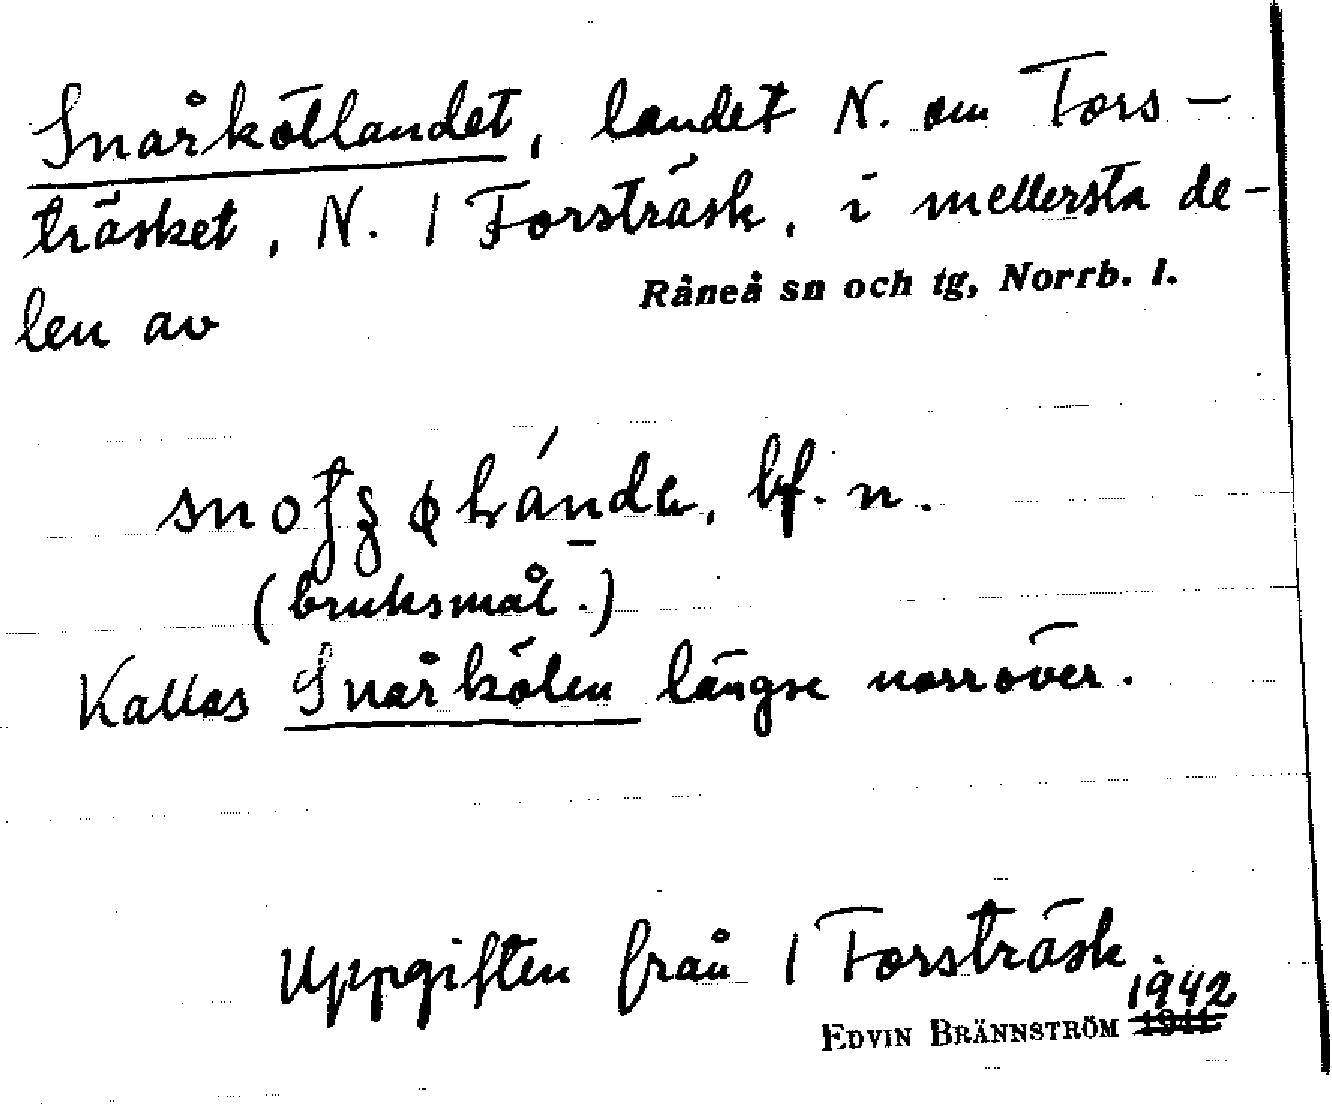 Snårköllandet, landet N. om Fors-
träsket, N. 1 Forsträsk, i mellersta de-
len av Råneå sn och tg, Norrb. l.
bf. n.
(bruksmål.)
Kallas Snårkölen längre norröver.
Uppgiften från 1 Forsträsk.
1942
EDVIN BRÄNNSTRÖM 1941